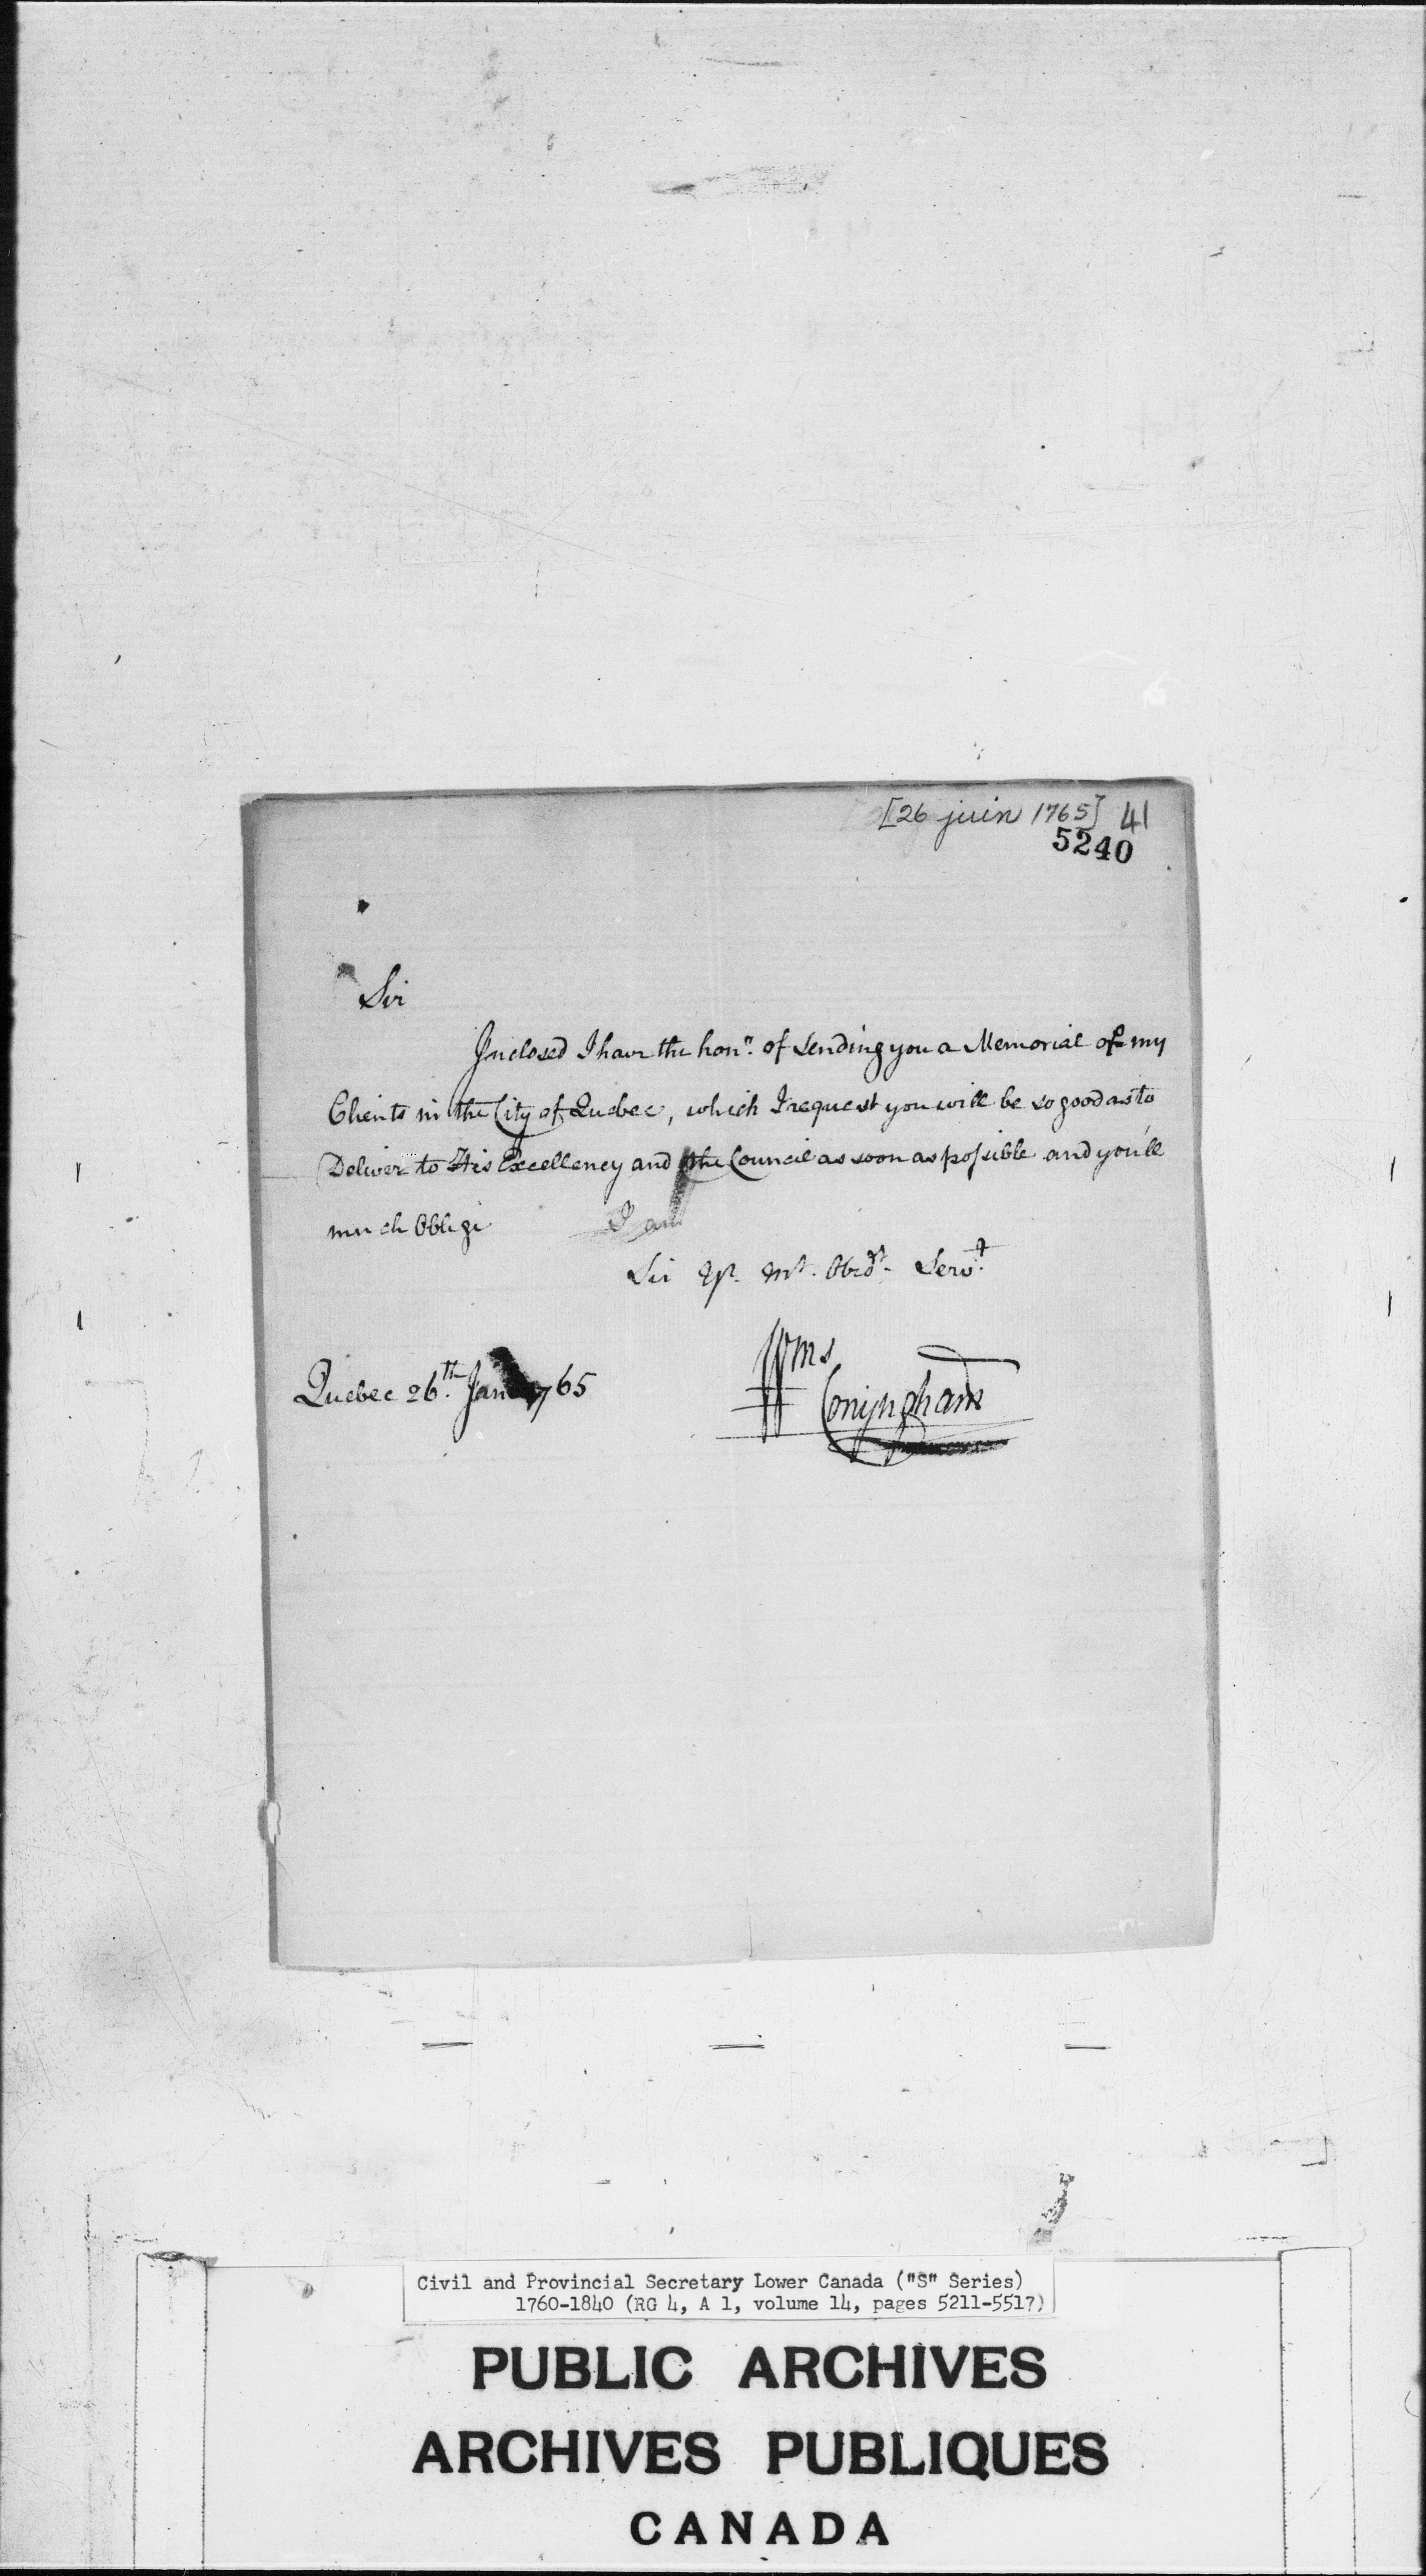 [26 juin 1765] 41
5240
Sir
Inclosed I have the honr. of sending you a Memorial of my
Clients in the City of Quebec, which I request you will be so good as to
Deliver to His Excellency and the Council as soon as possible and you'll
much Oblige I am
Sir Yr. Mt. Obedt. Servt.
Quebec 26th. Jan 1765
Wms
Conyngham
Civil and Provincial Secretary Lower Canada ("S" Series)
1760-1840 (RG 4, A 1, volume 14, pages 5211-5517)
PUBLIC ARCHIVES
ARCHIVES PUBLIQUES
CANADA